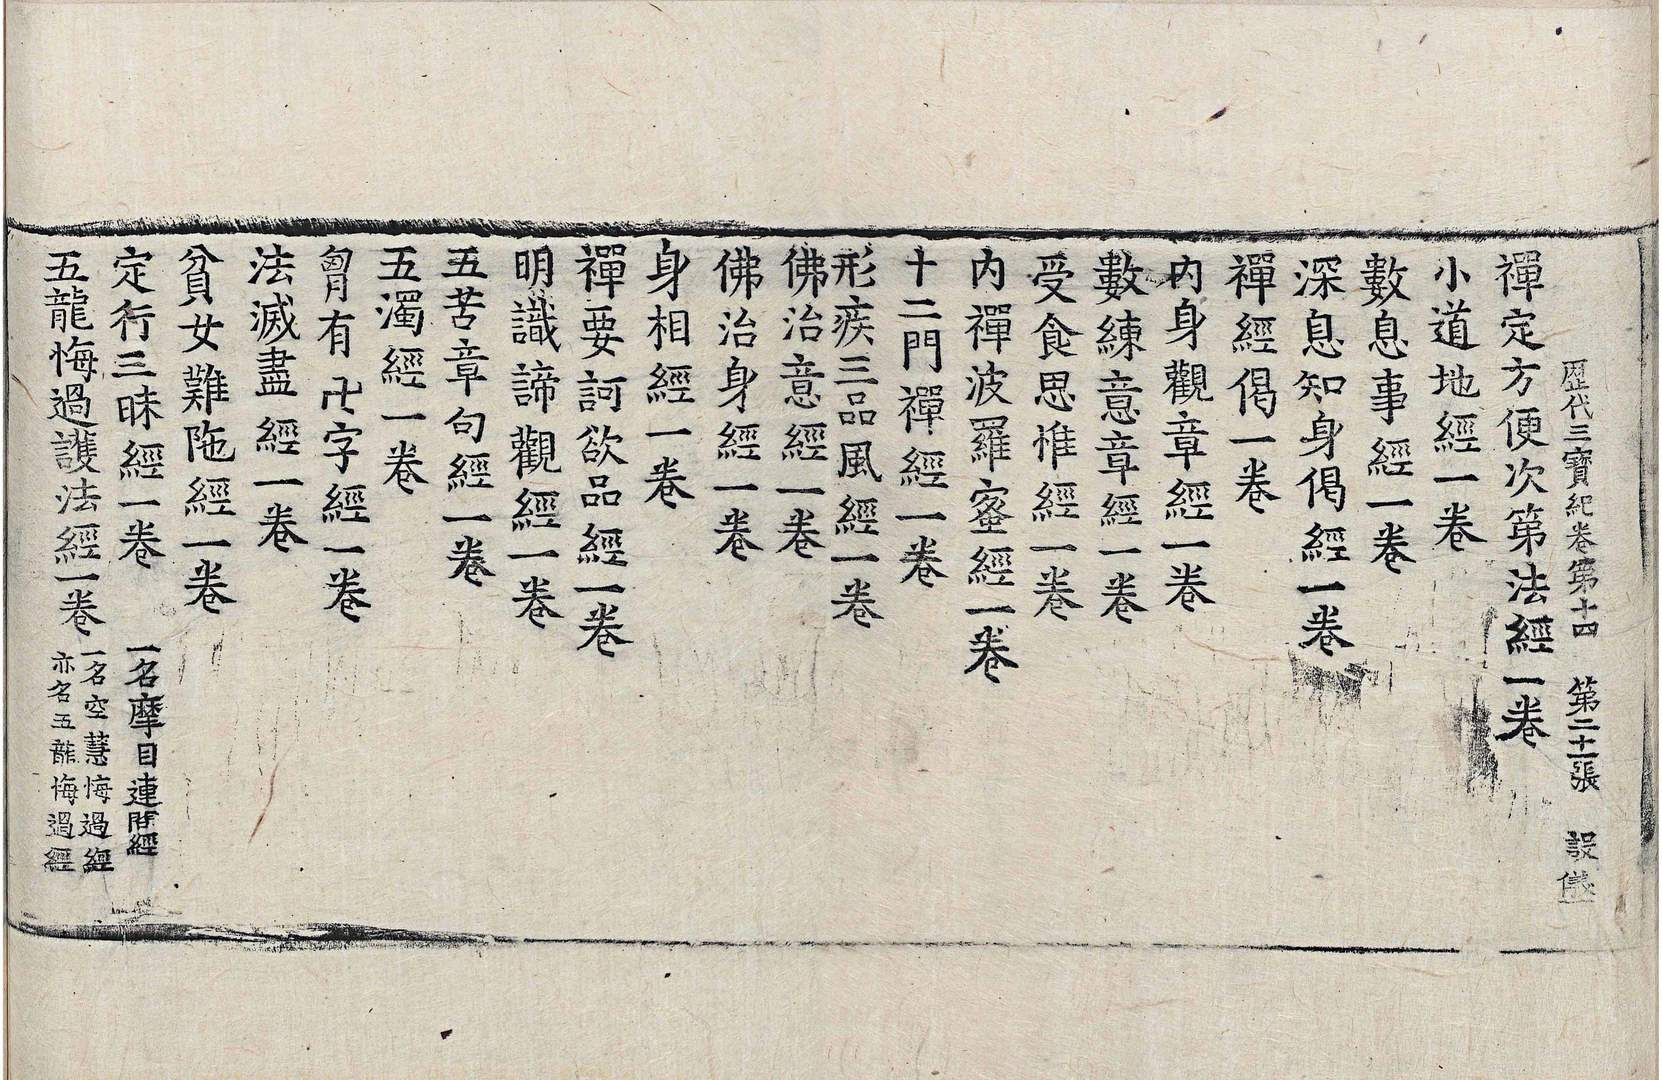 歷代三寶紀卷第十四 第二十一張 設
禪定方便次第法經一卷
小道地經一卷
數息事經一卷
深息知身偈經一卷
禪經偈一卷
內身觀章經一卷
數練意章經一卷
受食思惟經一卷
內禪波羅蜜經一卷
十二門禪經一卷
形疾三品風經一卷
佛治意經一卷
佛治身經一卷
身相經一卷
禪要訶欲品經一卷
明識諦觀經一卷
五苦章句經一卷
五濁經一卷
胷有卍字經一卷
法滅盡經一卷
貧女難陁經一卷
定行三昧經一卷 一名摩目連問經
五龍悔過護法經一卷 一名空慧悔過經
亦名五龍悔過經